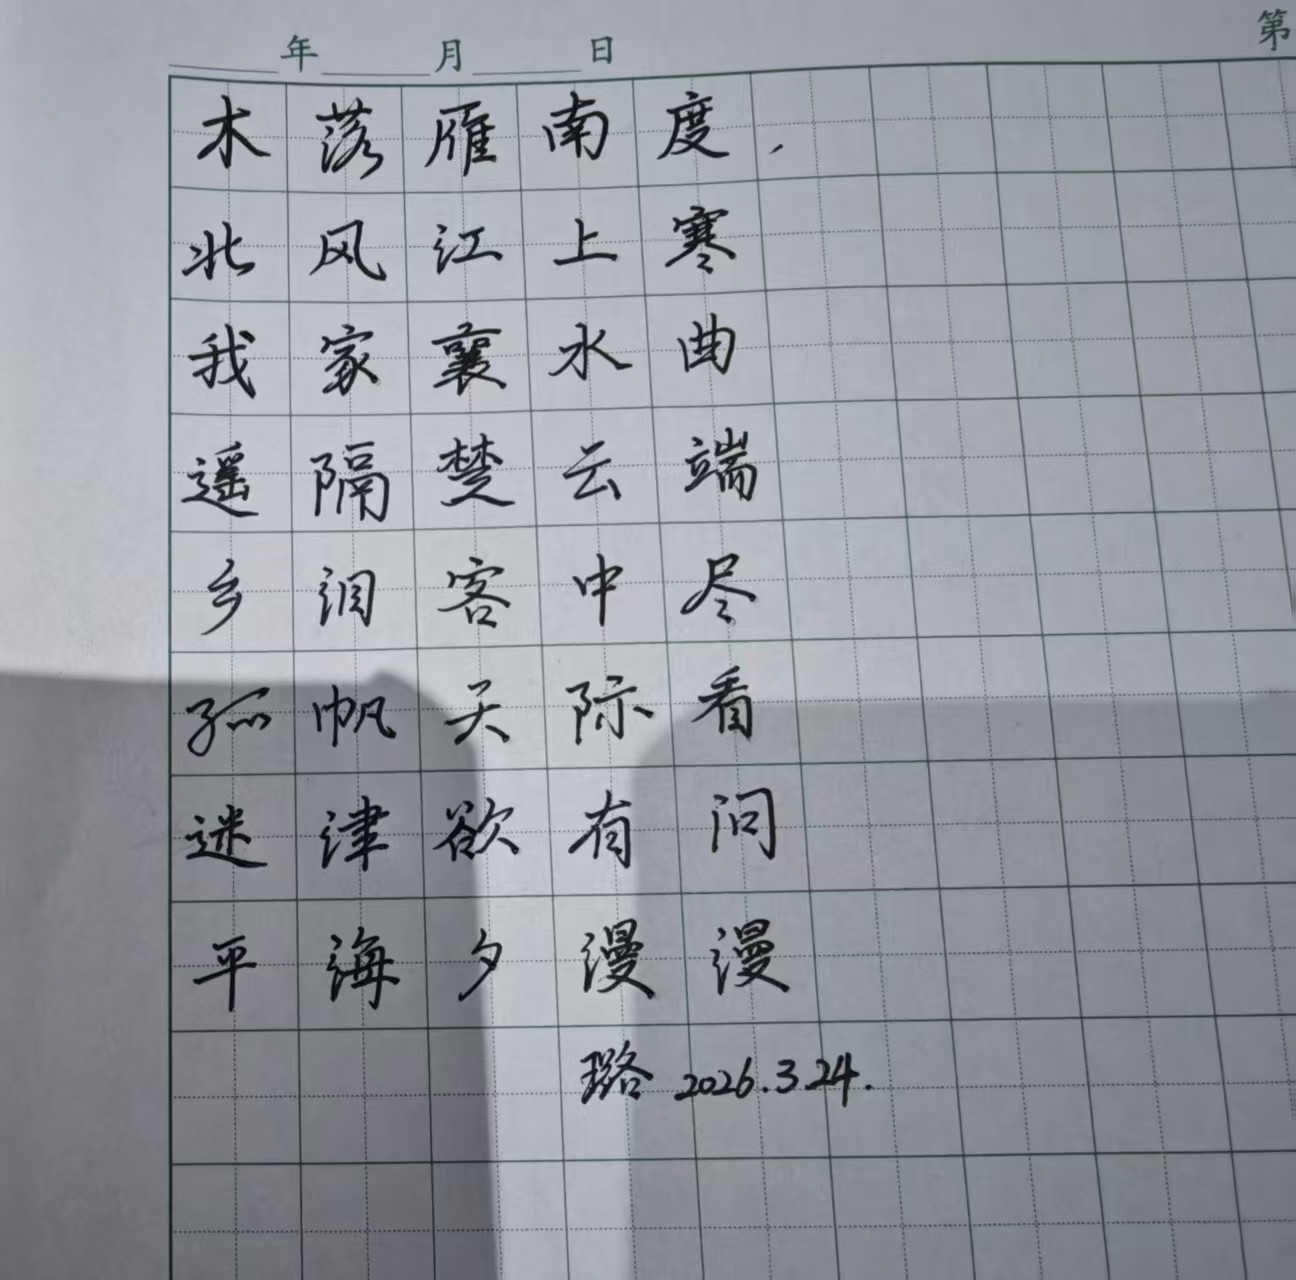 年 月 日 第
木落雁南度，
北风江上寒
我家襄水曲
遥隔楚云端
乡泪客中尽
孤帆天际看
迷津欲有问
平海夕漫漫
璐 2026.3.24.